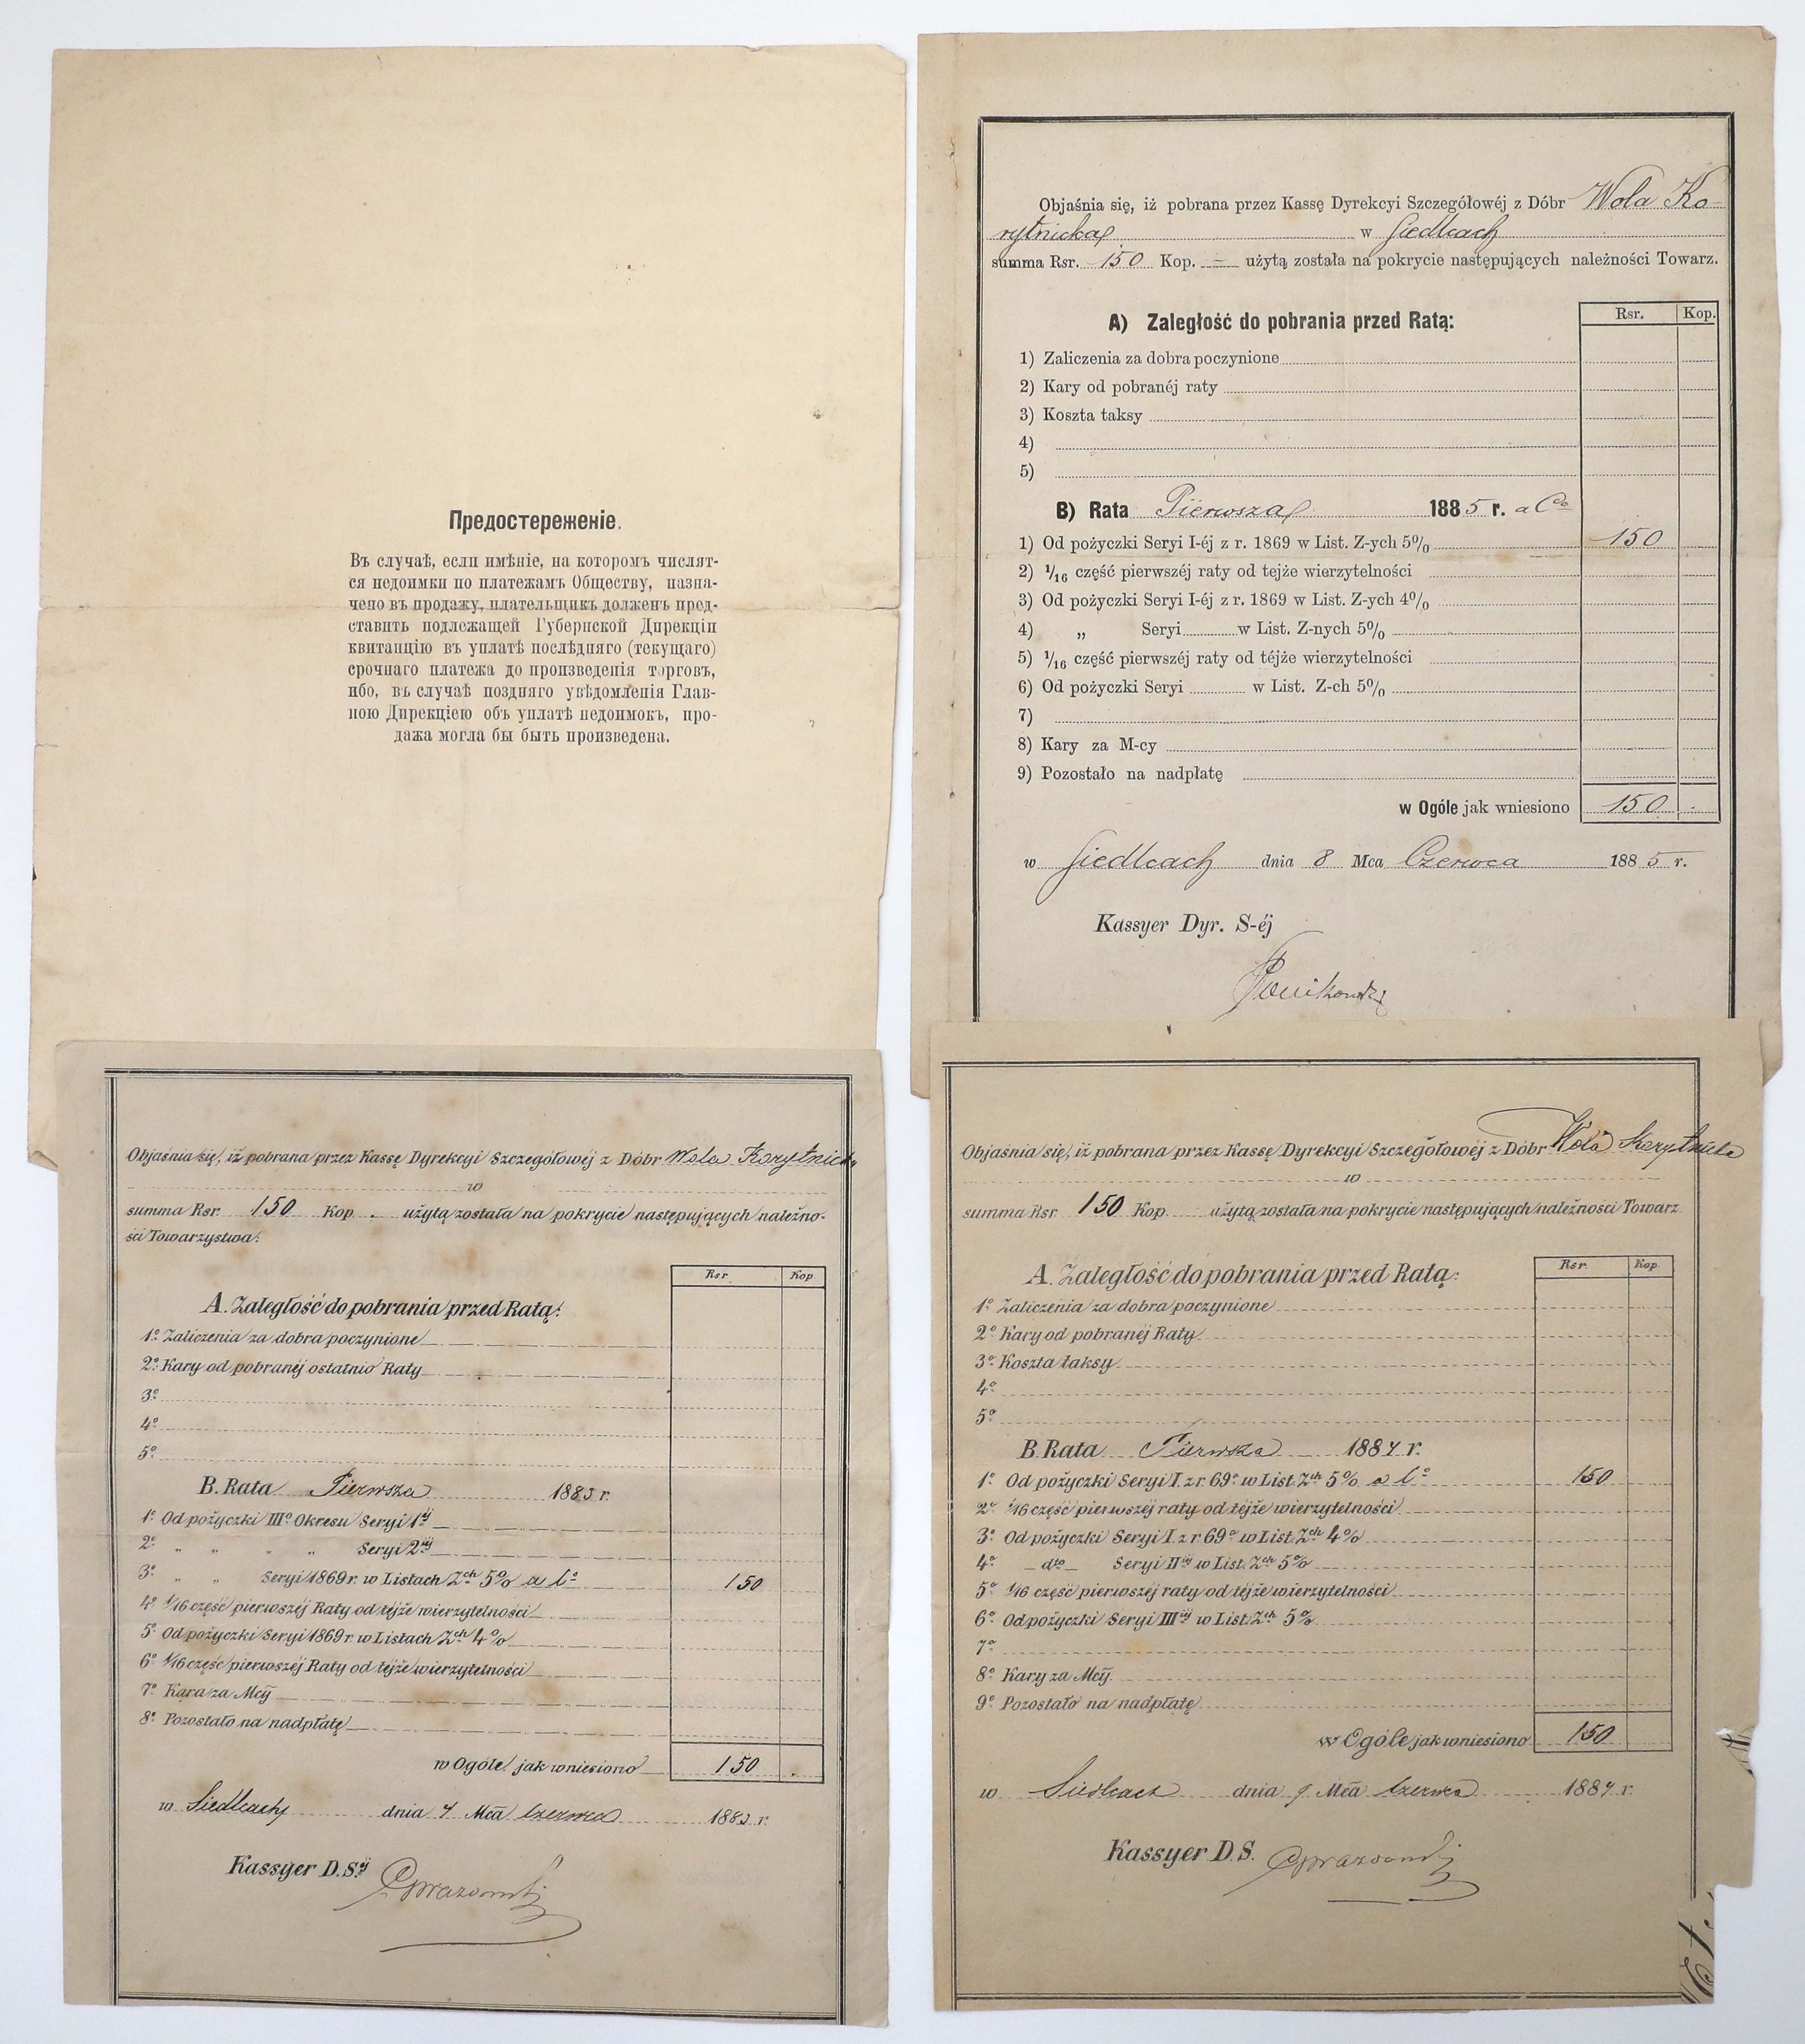 Предостереженіе.
Въ случаѣ, если имѣніе, на которомъ числят-
ся недоимки по платежамъ Обществу, назна-
чено въ продажу, плательщикъ долженъ пред-
ставить подлежащей Губернской Дирекціи
квитанцію въ уплатѣ послѣдняго (текущаго)
срочнаго платежа до произведенія торговъ,
ибо, въ случаѣ поздняго увѣдомленія Глав-
ною Дирекціею объ уплатѣ недоимокъ, про-
дажа могла бы быть произведена.
Objaśnia się, iż pobrana przez Kassę Dyrekcyi Szczegółowéj z Dóbr Wola Ko-
rytnicka w Siedlcach
summa Rsr. 150 Kop. — użytą została na pokrycie następujących należności Towarz.
Rsr. Kop.
A) Zaległość do pobrania przed Ratą:
1) Zaliczenia za dobra poczynione
2) Kary od pobranéj raty
3) Koszta taksy
4)
5)
B) Rata Pierwsza 1885 r. a Co
1) Od pożyczki Seryi I-éj z r. 1869 w List. Z-ych 5% 150
2) 1/16 część pierwszéj raty od tejże wierzytelności
3) Od pożyczki Seryi I-éj z r. 1869 w List. Z-ych 4%
4) „ Seryi w List. Z-nych 5%
5) 1/16 część pierwszéj raty od téjże wierzytelności
6) Od pożyczki Seryi w List. Z-ch 5%
7)
8) Kary za M-cy
9) Pozostało na nadpłatę
w Ogóle jak wniesiono 150 -
w Siedlcach dnia 8 Mca Czerwca 1885 r.
Kassyer Dyr. S-éj
Ponikowski
Objaśnia się, iż pobrana przez Kassę Dyrekcyi Szczegółowéj z Dóbr Wola Korytnicka
w
summa Rsr. 150 Kop . użytą została na pokrycie następujących należno-
ści Towarzystwa:
Rsr Kop
A. Zaległość do pobrania przed Ratą:
1º Zaliczenia za dobra poczynione
2º Kary od pobranéj ostatnio Raty
3º
4º
5º
B. Rata Pierwsza 1883 r.
1º Od pożyczki IIIº Okresu Seryi 1éj
2º „ „ „ „ Seryi 2éj
3º „ „ Seryi 1869 r. w Listach Zch 5% a Co 150
4º 1/16 część pierwszéj Raty od téjże wierzytelności
5º Od pożyczki Seryi 1869 r. w Listach Zch 4%
6º 1/16 część pierwszéj Raty od téjże wierzytelności
7º Kara za Mcy
8º Pozostało na nadpłatę
w Ogóle jak wniesiono 150 .
w Siedlcach dnia 4 Mca Czerwca 1883 r.
Kassyer D. Séj
Objaśnia się, iż pobrana przez Kassę Dyrekcyi Szczegółowéj z Dóbr Wola Korytnicka
w
summa Rsr 150 Kop. użytą została na pokrycie następujących należności Towarz.
Rsr. Kop.
A. Zaległość do pobrania przed Ratą:
1º Zaliczenia za dobra poczynione
2º Kary od pobranéj Raty
3º Koszta taksy
4º
5º
B. Rata Pierwsza 1884 r.
1º Od pożyczki Seryi I z r. 69º w List. Zch 5% a Co 150
2º 1/16 część pierwszéj raty od téjże wierzytelności
3º Od pożyczki Seryi I z r 69º w List. Zch 4%
4º — dto — Seryi IIéj w List. Zch 5%
5º 1/16 część pierwszéj raty od téjże wierzytelności
6º Od pożyczki Seryi IIIéj w List. Zch 5%
7º
8º Kary za Mcy
9º Pozostało na nadpłatę
w Ogóle jak wniesiono 150
w Siedlcach dnia 9 Mca Czerwca 1884 r.
Kassyer D. S.